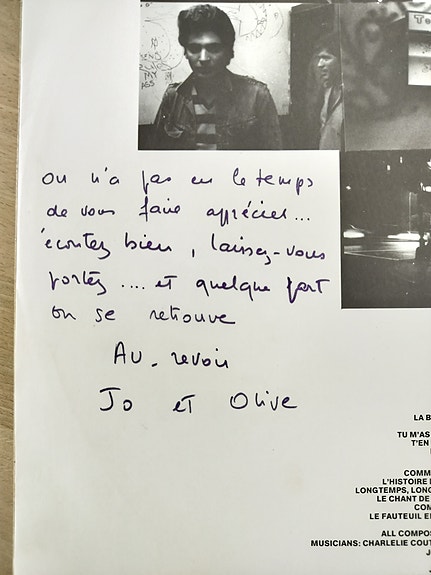 on n'a pas eu le temps
de vous faire apprécier...
écoutez bien, laissez-vous
portez .... et quelque part
on se retrouve
Au-revoir
Jo et Olive
LA B
TU M'AS
T'EN
COMM
L'HISTOIRE
LONGTEMPS, LONG
LE CHANT DE
COM
LE FAUTEUIL E
ALL COMPOS
MUSICIANS: CHARLELIE COUT